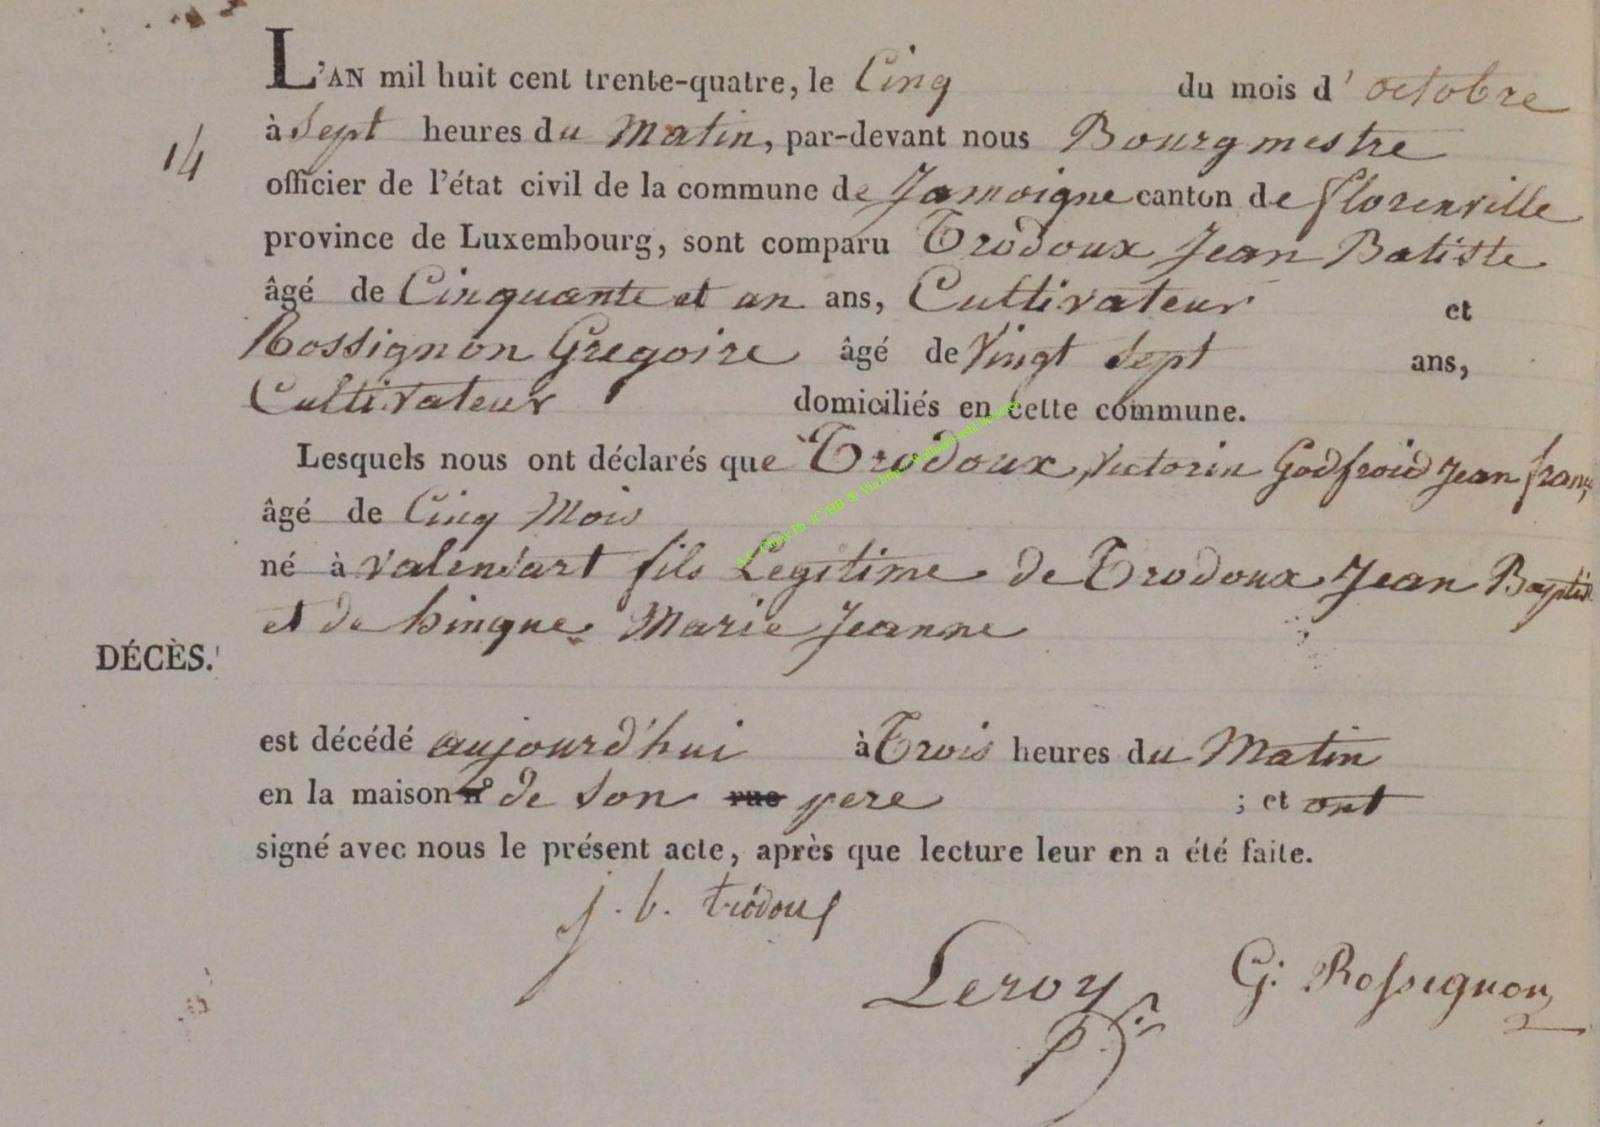 L'AN mil huit cent trente-quatre, le Cinq du mois d'octobre
14
à Sept heures du Matin, par-devant nous Bourgmestre
officier de l'état civil de la commune de Jamoigne canton de florenville
province de Luxembourg, sont comparu Trodoux Jean Batiste
âgé de Cinquante et un ans, Cultivateur et
Rossignon Gregoire âgé de Vingt Sept ans,
Cultivateur domiciliés en cette commune.
Lesquels nous ont déclarés que Trodoux Victorin Godfroid Jean franç
âgé de Cinq Mois
né à Valensart fils Legitime de Trodoux Jean Baptist
et de hinque Marie Jeanne
DÉCÈS.
est décédé aujourd'hui à Trois heures du Matin
en la maison n° de son rue pere ; et ont
signé avec nous le présent acte, après que lecture leur en a été faite.
j. b. trodoux
Leroy
G: Rossignon